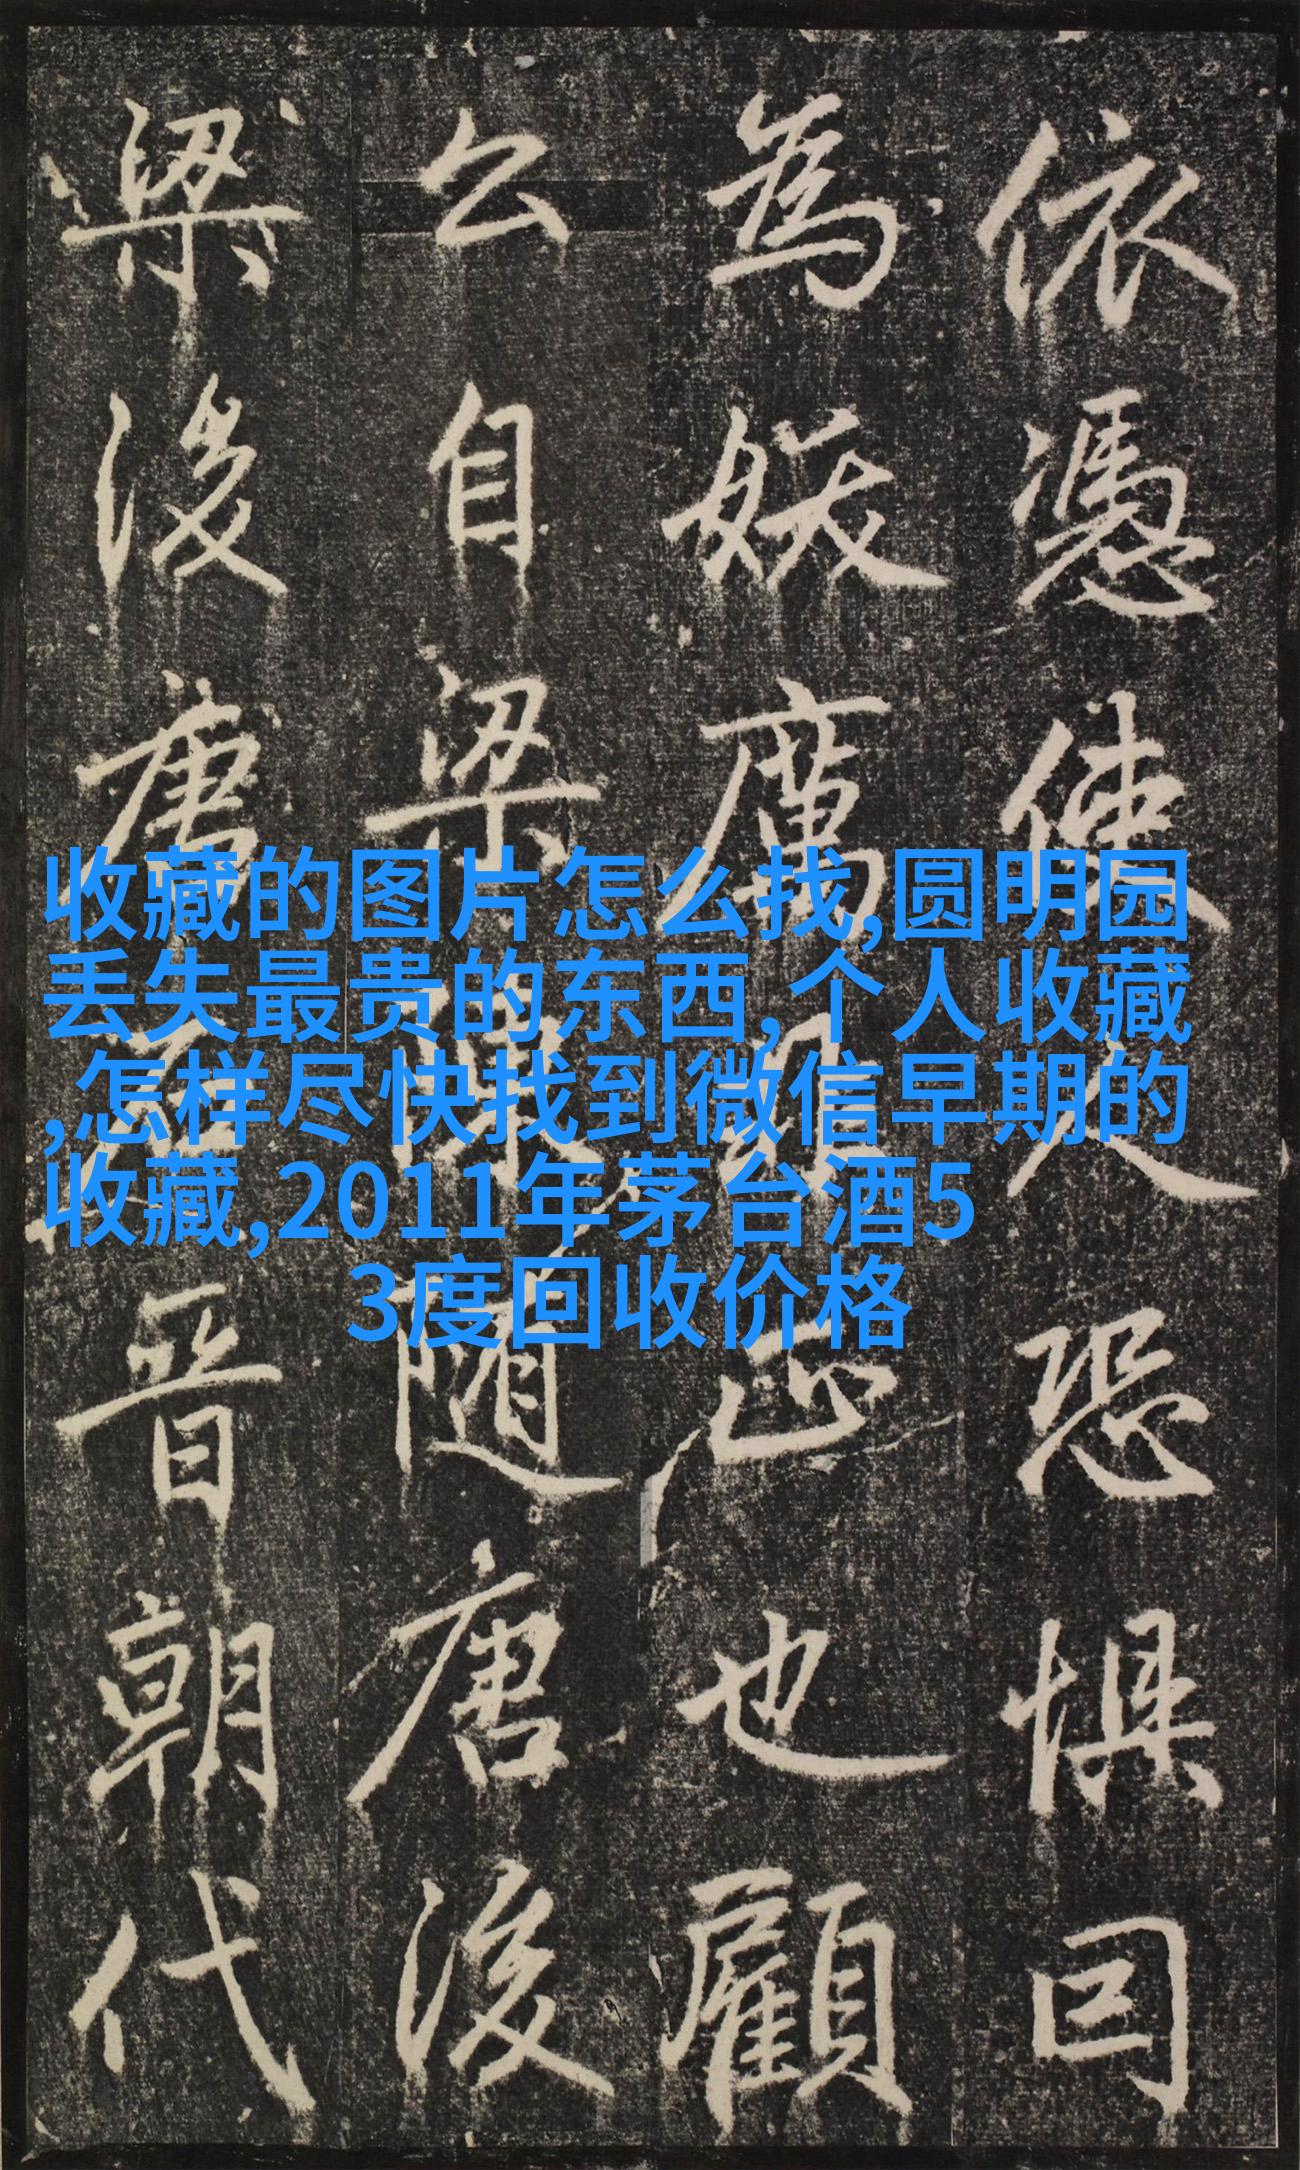 依憑使人恐懼囙
為妖厲正也顧
公自梁陳随唐後
梁後唐石晉朝代
收藏的图片怎么找,圆明园
丢失最贵的东西,个人收藏
,怎样尽快找到微信早期的
收藏,2011年茅台酒5
3度回收价格